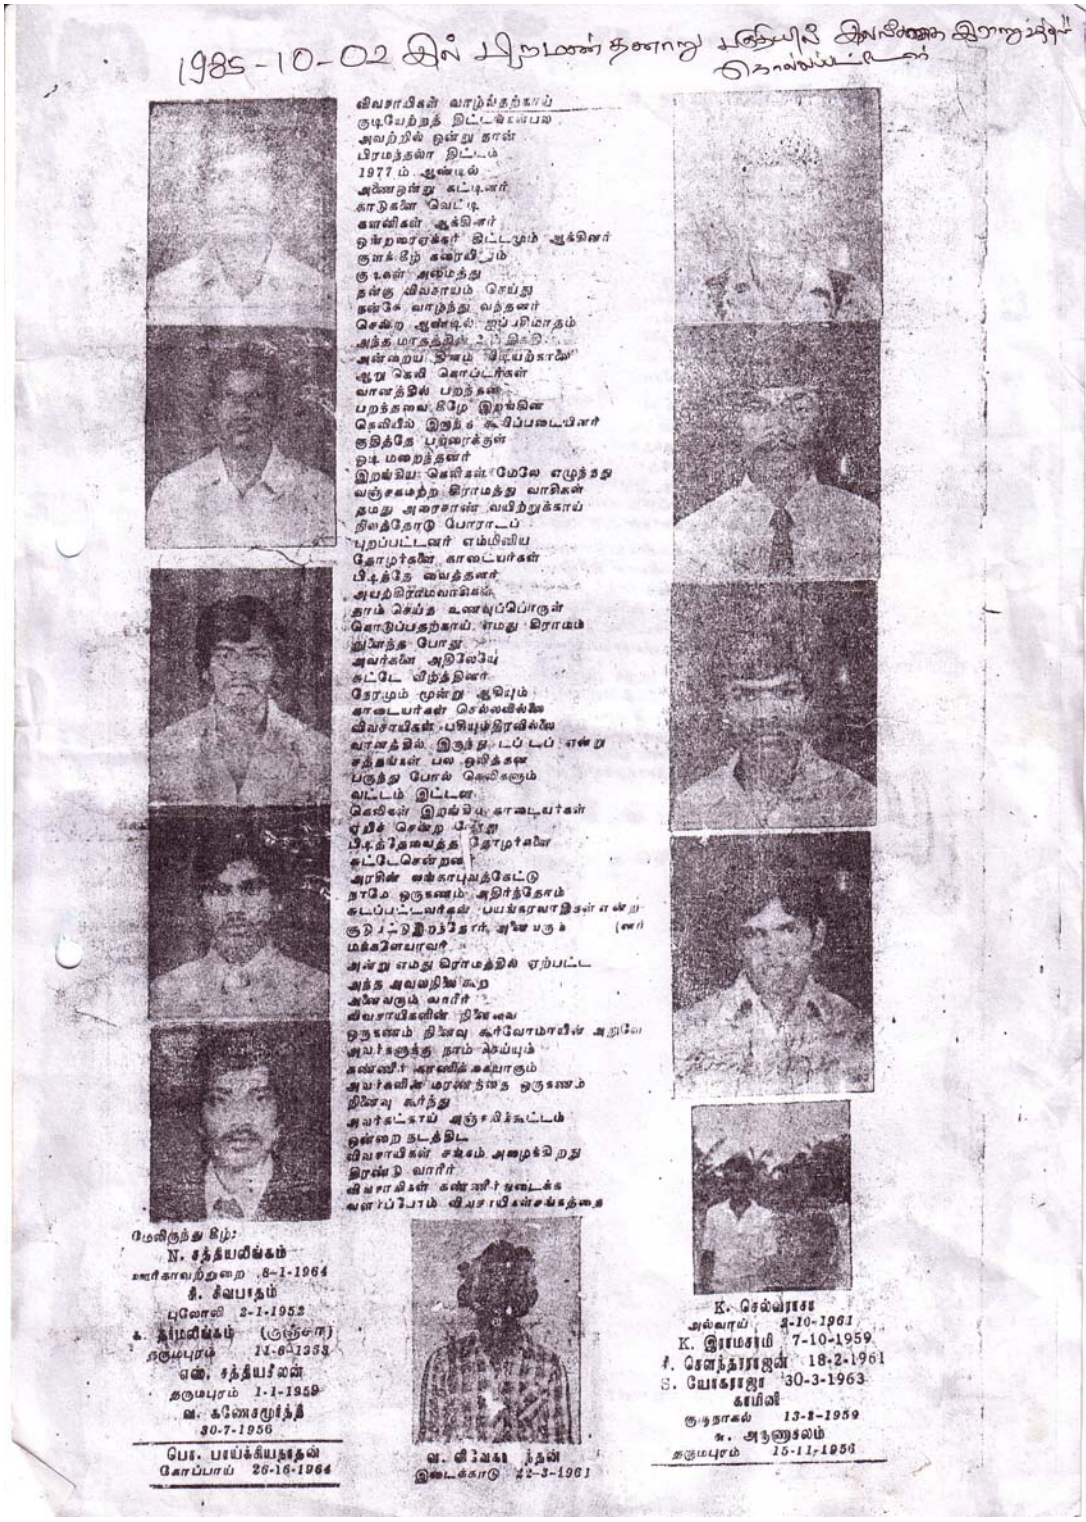 1985-10-02 இல் பிறமண்தனாறு பகுதியில் இலங்கை இராணுவத்தால்
கொல்லப்பட்டோர்
விவசாயிகள் வாழ்வதற்காய்
குடியேற்றத் திட்டங்கள்பல
அவற்றில் ஒன்று தான்
பிரமந்தலா திட்டம்
1977 ம் ஆண்டில்
அணைஒன்று கட்டினர்
காடுகளை வெட்டி
களனிகள் ஆக்கினர்
ஒன்றரைஏக்கர் திட்டமும் ஆக்கினர்
குளக்கீழ் கரையிலும்
குடிகள் அமைத்து
நன்கு விவசாயம் செய்து
நன்கே வாழ்ந்து வந்தனர்
சென்ற ஆண்டில் ஐப்பசிமாதம்
அந்த மாதத்தின் திகதி
அன்றைய தினம் விடியற்காலை
ஆறு கெலி கொப்டர்கள்
வானத்தில் பறந்தன
பறந்தவை கீழே இறங்கின
கெலியில் இருந்த கூலிப்படையினர்
குதித்தே பற்றைக்குள்
ஓடி மறைந்தனர்
இறங்கிய கெலிகள் மேலே எழுந்தது
வஞ்சகமற்ற கிராமத்து வாசிகள்
தமது அரைசாண் வயிற்றுக்காய்
நிலத்தோடு போராடப்
புறப்பட்டனர் எம்மினிய
தோழர்களை காடையர்கள்
பிடித்தே வைத்தனர்
அயற்கிராமவாசிகள்
தாம் செய்த உணவுப்பொருள்
கொடுப்பதற்காய் எமது கிராமம்
நுளைந்த போது
அவர்களை அதிலேயே
சுட்டே வீழ்த்தினர்
நேரமும் மூன்று ஆகியும்
காடையர்கள் செல்லவில்லை
விவசாயிகள் பசியும்தீரவில்லை
வானத்தில் இருந்து டப் டப் என்று
சத்தங்கள் பல ஒலித்தன
பருந்து போல் கெலிகளும்
வட்டம் இட்டன
கெலிகள் இறங்கிய காடையர்கள்
ஏறிச் சென்ற போது
பிடித்தேவைத்த தோழர்களை
சுட்டேசென்றனர்
அரசின் லங்காபுவத்கேட்டு
நாமே ஒருகணம் அதிர்ந்தோம்
சுடப்பட்டவர்கள் பயங்கரவாதிகள் என்ற
சூடுபட்டுஇறந்தோர் அனைவரும் (னர்
மக்களேயாவர்
அன்று எமது கிராமத்தில் ஏற்பட்ட
அந்த அவலநிலை கூற
அனைவரும் வாரீர்
விவசாயிகளின் நினைவை
ஒருகணம் நினைவு கூர்வோமாயின் அதுவே
அவர்களுக்கு நாம் செய்யும்
கண்ணீர் காணிக்கையாகும்
அவர்களின் மரணத்தை ஒருகணம்
நினைவு கூர்ந்து
அவர்கட்காய் அஞ்சலிக்கூட்டம்
ஒன்றை நடத்திட
விவசாயிகள் சங்கம் அழைக்கிறது
திரண்டு வாரீர்
விவசாயிகள் கண்ணீர்துடைக்க
வளர்ப்போம் விவசாயிகள்சங்கத்தை
மேலிருந்து கீழ்:
N. சத்தியலிங்கம்
ஊர்காவற்றுறை 8-1-1964
சி. சிவபாதம்
புலோலி 2-1-1952
க. தர்மலிங்கம் (குஞ்சா)
தருமபுரம் 11-6-1953
எஸ். சத்தியசீலன்
தருமபுரம் 1-1-1959
வ. கணேசமூர்த்தி
30-7-1956
பொ. பாய்க்கியநாதன்
கோப்பாய் 26-16-1964
வ. விவேகானந்தன்
இடைக்காடு 22-3-1961
K. செல்வராசா
அல்வாய் 2-10-1961
K. இராமசாமி 7-10-1959
சி. சௌந்தரராஜன் 18-2-1961
S. யோகராஜா 30-3-1963
காமினி
குடிநாகல் 13-2-1959
சு. அருணாசலம்
தருமபுரம் 15-11-1956